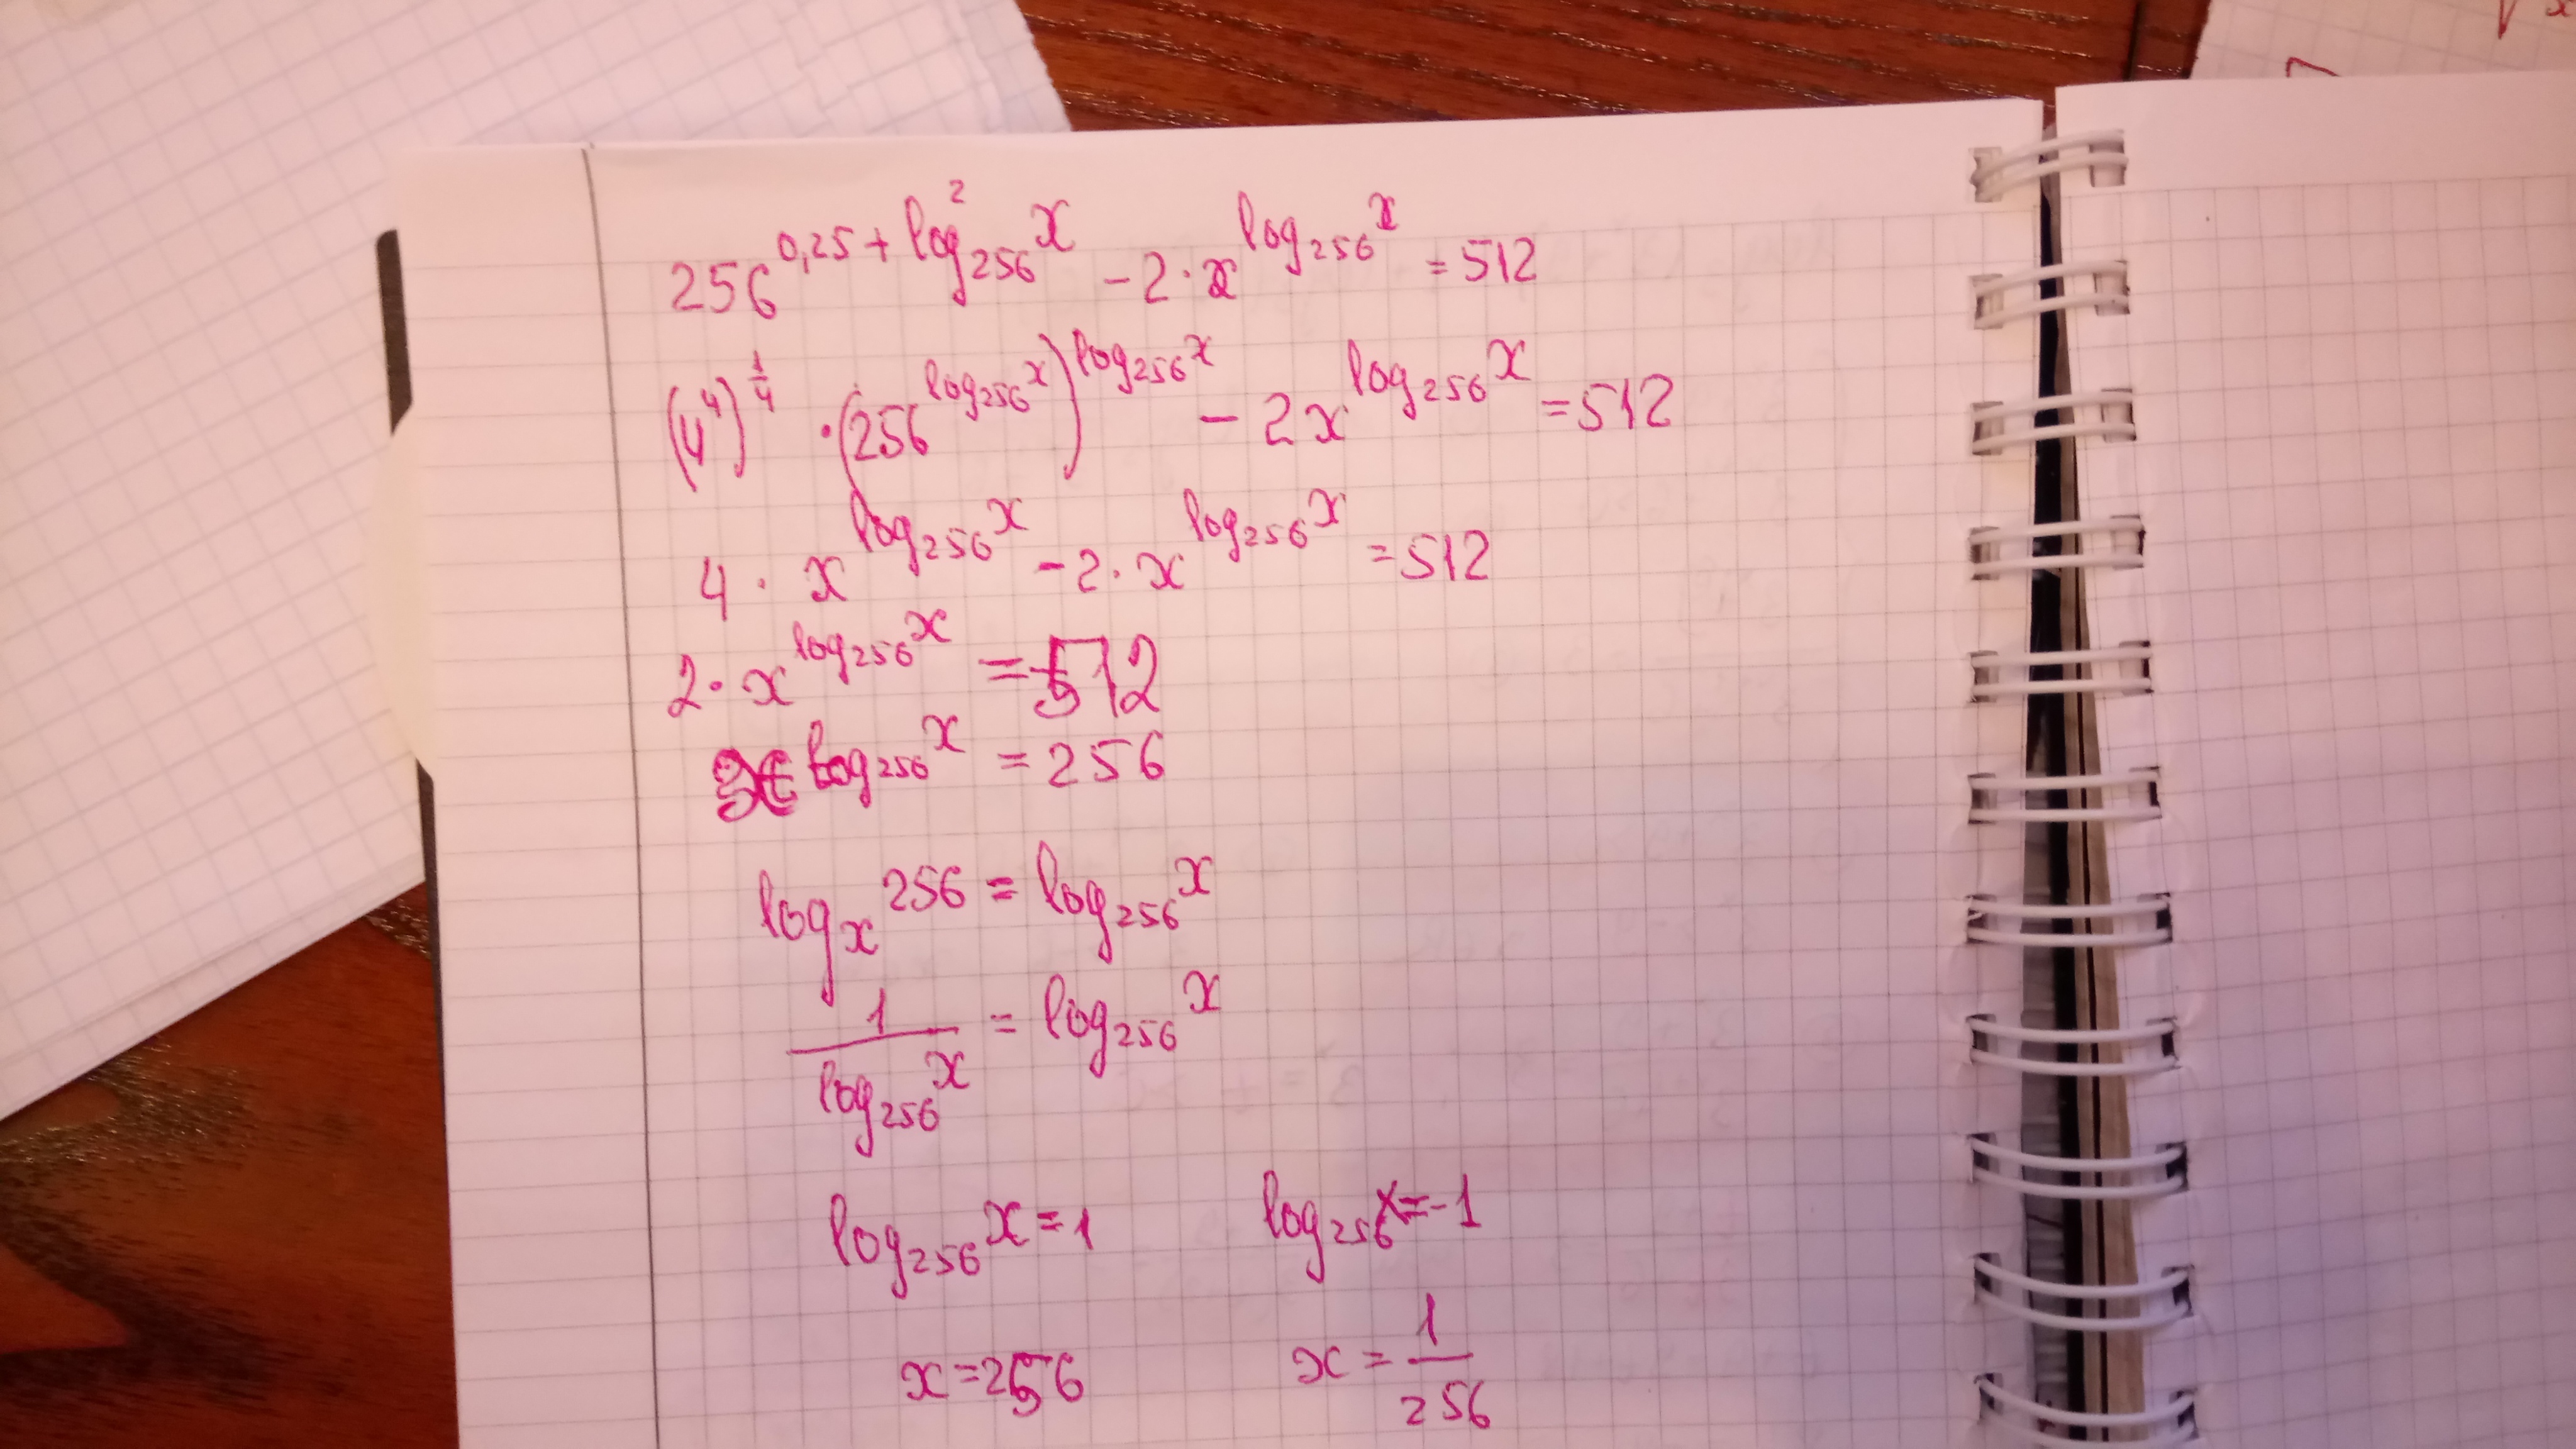 256^{0,25 + log²_{256} x} - 2 · x^{log_{256} x} = 512
(4^4)^{1/4} · (256^{log_{256} x})^{log_{256} x} - 2x^{log_{256} x} = 512
4 · x^{log_{256} x} - 2 · x^{log_{256} x} = 512
2 · x^{log_{256} x} = 512
x^{log_{256} x} = 256
log_x 256 = log_{256} x
1/log_{256} x = log_{256} x
log_{256} x = 1 log_{256} x = -1
x = 256 x = 1/256